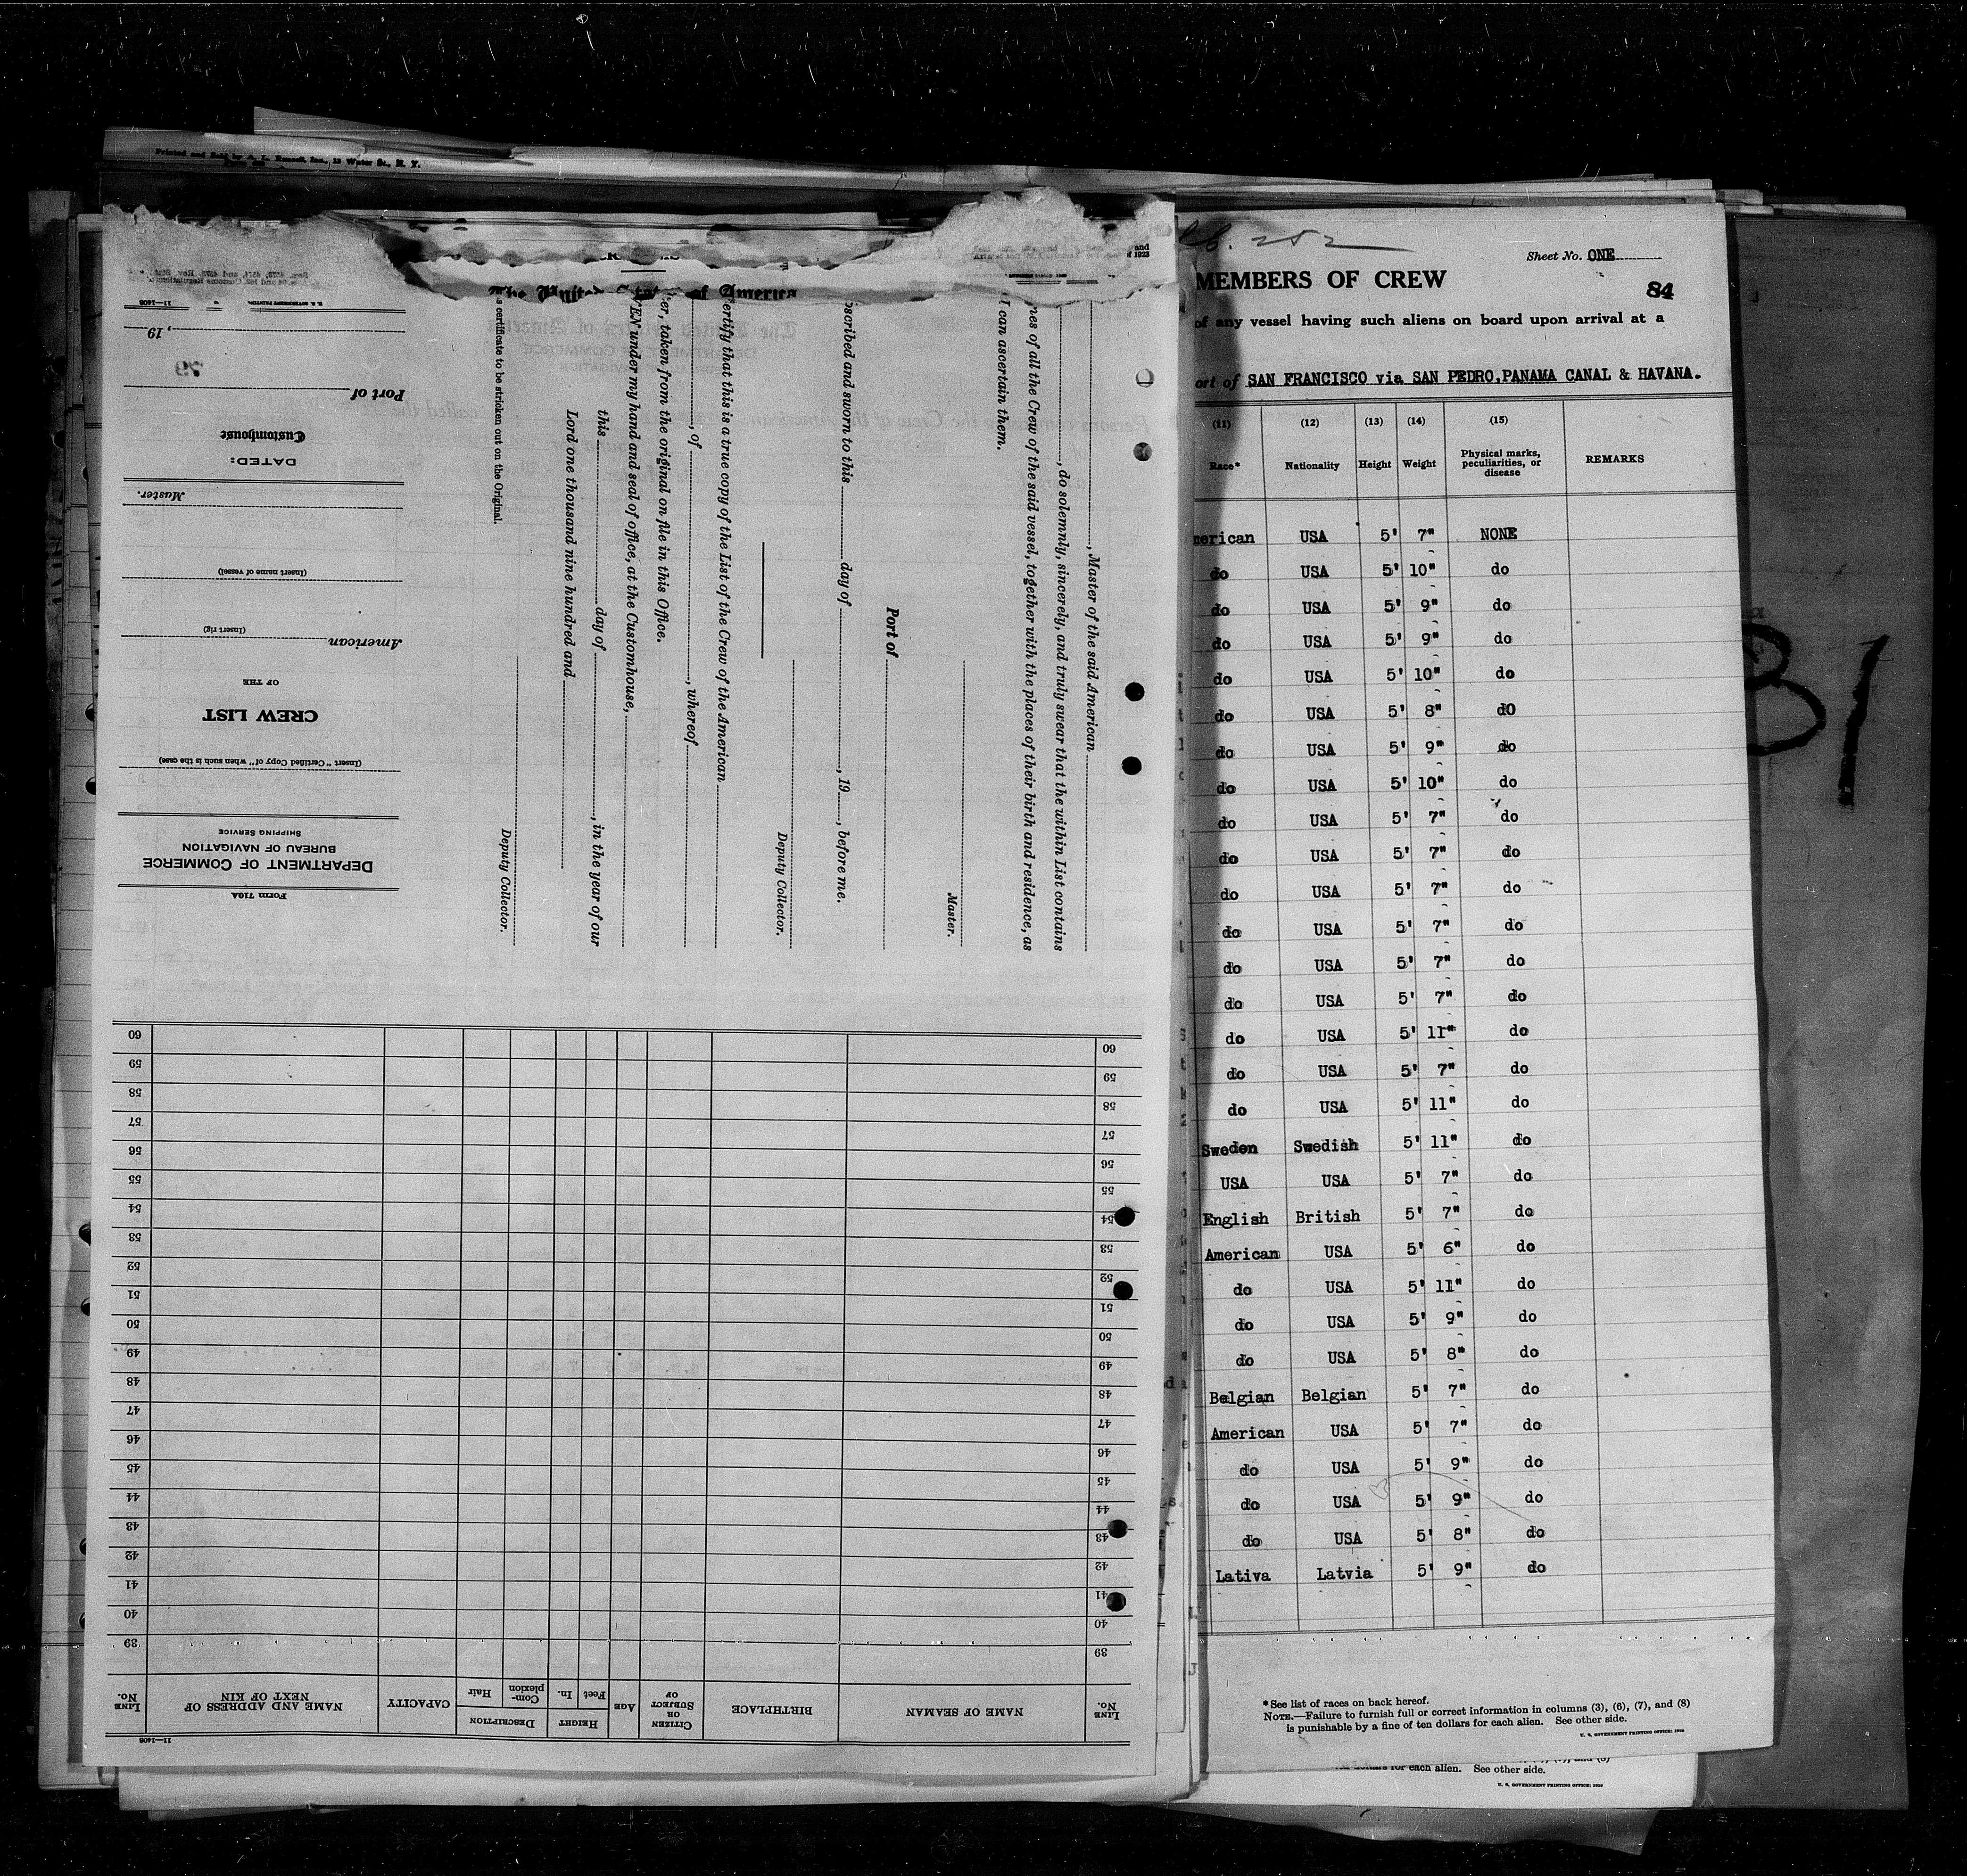 Printed and Sold by A. L. Russell, Inc., 13 Water St., N. Y.
and
f 1923
The United States of America
, Master of the said American
, do solemnly, sincerely, and truly swear that the within List contains
nes of all the Crew of the said vessel, together with the places of their birth and residence, as
I can ascertain them.
Master.
Port of
bscribed and sworn to this day of , 19 , before me.
Deputy Collector.
ertify that this is a true copy of the List of the Crew of the American
, of , whereof
er, taken from the original on file in this Office.
VEN under my hand and seal of office, at the Customhouse,
this day of , in the year of our
Lord one thousand nine hundred and
Deputy Collector.
s certificate to be stricken out on the Original.
Form 710A
DEPARTMENT OF COMMERCE
BUREAU OF NAVIGATION
SHIPPING SERVICE
(Insert "Certified Copy of" when such is the case)
CREW LIST
OF THE
American
(Insert rig)
(Insert name of vessel)
Master.
DATED:
Customhouse
Port of
, 19
11—1408
11—1408
LINE No. NAME OF SEAMAN BIRTHPLACE CITIZEN OR SUBJECT OF AGE HEIGHT Feet In. DESCRIPTION Complexion Hair CAPACITY NAME AND ADDRESS OF NEXT OF KIN LINE No.
39 39
40 40
41 41
42 42
43 43
44 44
45 45
46 46
47 47
48 48
49 49
50 50
51 51
52 52
53 53
54 54
55 55
56 56
57 57
58 58
59 59
60 60
Sheet No. ONE
MEMBERS OF CREW
84
of any vessel having such aliens on board upon arrival at a
ort of SAN FRANCISCO via SAN PEDRO, PANAMA CANAL & HAVANA.
(11) (12) (13) (14) (15)
Race* Nationality Height Weight Physical marks, peculiarities, or disease REMARKS
merican USA 5' 7" NONE
do USA 5' 10" do
do USA 5' 9" do
do USA 5' 9" do
do USA 5' 10" do
do USA 5' 8" dO
do USA 5' 9" do
do USA 5' 10" do
do USA 5' 7" do
do USA 5' 7" do
do USA 5' 7" do
do USA 5' 7" do
do USA 5' 7" do
do USA 5' 7" do
do USA 5' 11" do
do USA 5' 7" do
do USA 5' 11" do
Sweden Swedish 5' 11" do
USA USA 5' 7" do
English British 5' 7" do
American USA 5' 6" do
do USA 5' 11" do
do USA 5' 9" do
do USA 5' 8" do
Belgian Belgian 5' 7" do
American USA 5' 7" do
do USA 5' 9" do
do USA 5' 9" do
do USA 5' 8" do
Lativa Latvia 5' 9" do
*See list of races on back hereof.
NOTE.—Failure to furnish full or correct information in columns (3), (6), (7), and (8)
is punishable by a fine of ten dollars for each alien. See other side.
U. S. GOVERNMENT PRINTING OFFICE
for each alien. See other side.
U. S. GOVERNMENT PRINTING OFFICE
31